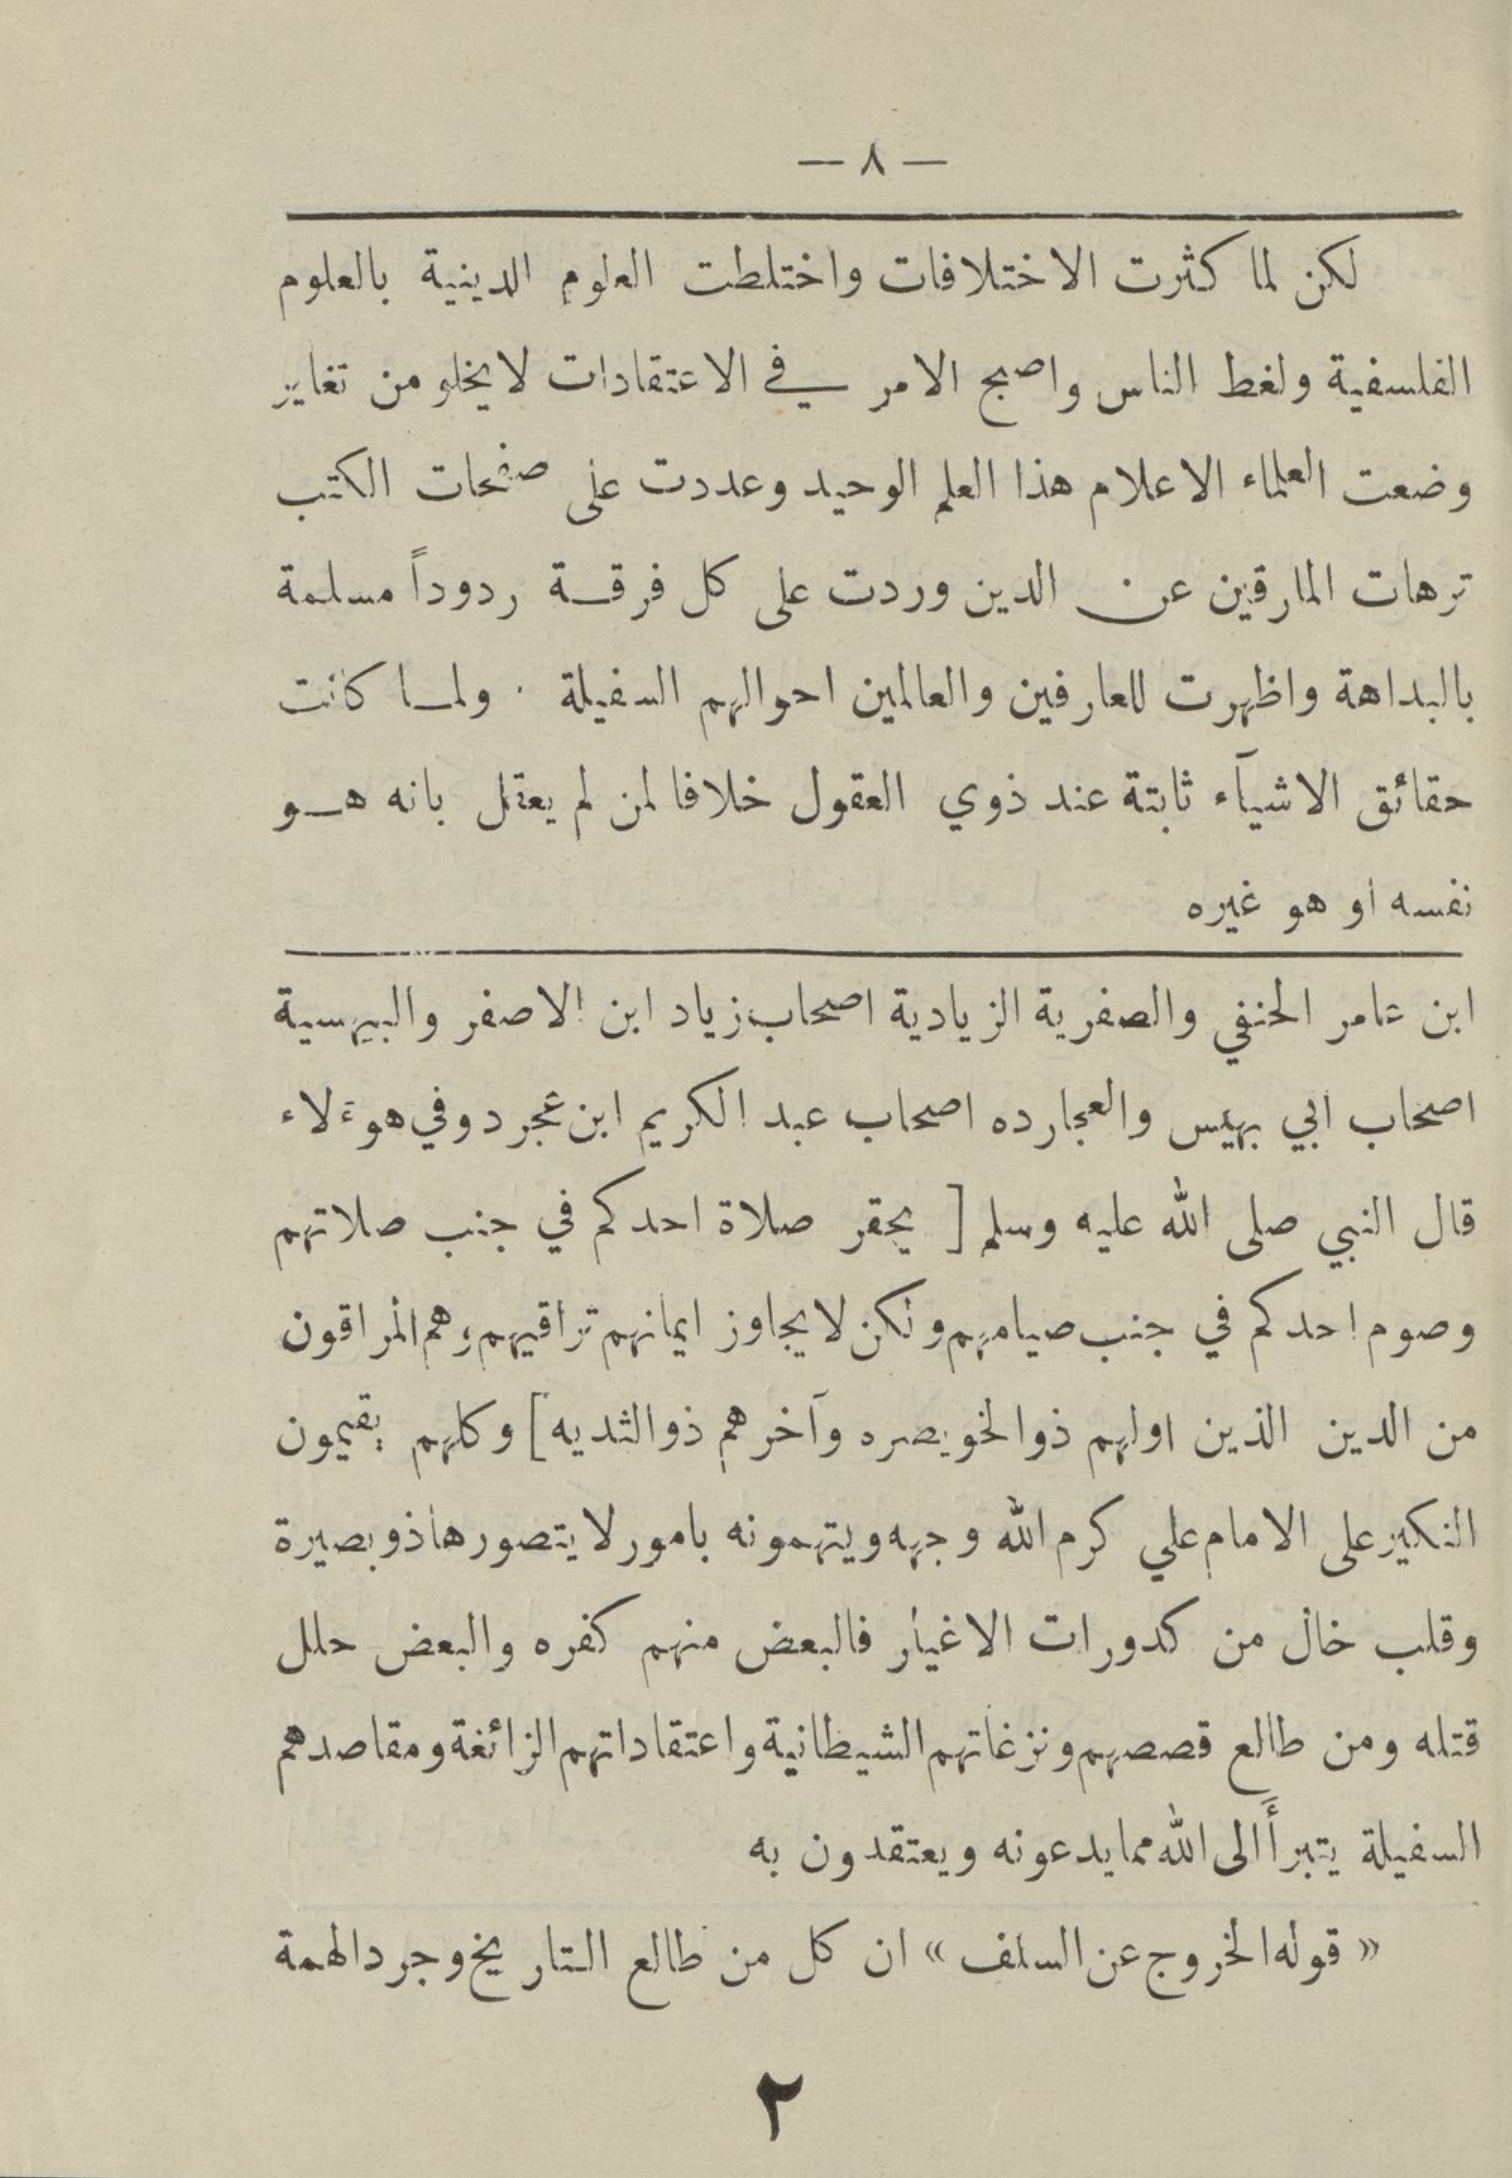 — ٨ —
لكن لما كثرت الاختلافات واختلطت العلوم الدينية بالعلوم
الفلسفية ولغط الناس واصبح الامر في الاعتقادات لايخلو من تغاير
وضعت العلماء الاعلام هذا العلم الوحيد وعددت على صفحات الكتب
ترهات المارقين عن الدين وردت على كل فرقة ردوداً مسلمة
بالبداهة واظهرت للعارفين والعالمين احوالهم السفيلة . ولما كانت
حقائق الاشيآء ثابتة عند ذوي العقول خلافا لمن لم يعقل بانه هو
نفسه او هو غيره
ابن عامر الحنفي والصفرية الزيادية اصحاب زياد ابن الاصفر والبيهسية
اصحاب ابي بهيس والعجارده اصحاب عبد الكريم ابن عجرد وفي هوءلاء
قال النبي صلى الله عليه وسلم [ يحقر صلاة احدكم في جنب صلاتهم
وصوم احدكم في جنب صيامهم ولكن لايجاوز ايمانهم تراقيهم وهم المراقون
من الدين الذين اولهم ذوالخويصره وآخرهم ذوالثديه ] وكلهم يقيمون
النكير على الامام علي كرم الله وجهه ويتهمونه بامور لايتصورها ذو بصيرة
وقلب خال من كدورات الاغيار فالبعض منهم كفره والبعض حلل
قتله ومن طالع قصصهم ونزغاتهم الشيطانية واعتقاداتهم الزائغة ومقاصدهم
السفيلة يتبرأ الى الله مما يدعونه ويعتقدون به
« قوله الخروج عن السلف » ان كل من طالع التاريخ وجرد الهمة
٢